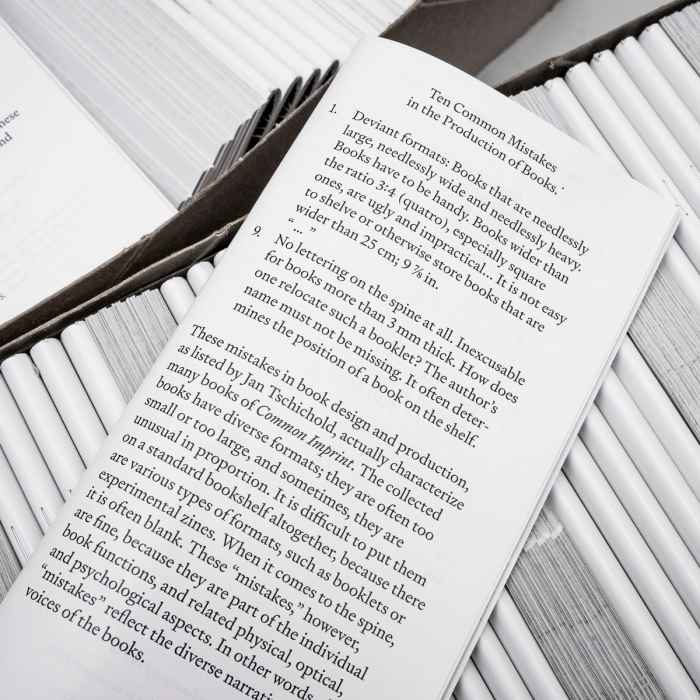 nese
nd
s.
Ten Common Mistakes
in the Production of Books.
1. Deviant formats: Books that are needlessly
large, needlessly wide and needlessly heavy.
Books have to be handy. Books wider than
the ratio 3:4 (quatro), especially square
ones, are ugly and impractical… It is not easy
to shelve or otherwise store books that are
wider than 25 cm; 9 ⅞ in.
“… ”
9. No lettering on the spine at all. Inexcusable
for books more than 3 mm thick. How does
one relocate such a booklet? The author’s
name must not be missing. It often deter-
mines the position of a book on the shelf.
These mistakes in book design and production,
as listed by Jan Tschichold, actually characterize
many books of Common Imprint. The collected
books have diverse formats; they are often too
small or too large, and sometimes, they are
unusual in proportion. It is difficult to put them
on a standard bookshelf altogether, because there
are various types of formats, such as booklets or
experimental zines. When it comes to the spine,
it is often blank. These “mistakes,” however,
are fine, because they are part of the individual
book functions, and related physical, optical,
and psychological aspects. In other words
“mistakes” reflect the diverse narrati
voices of the books.